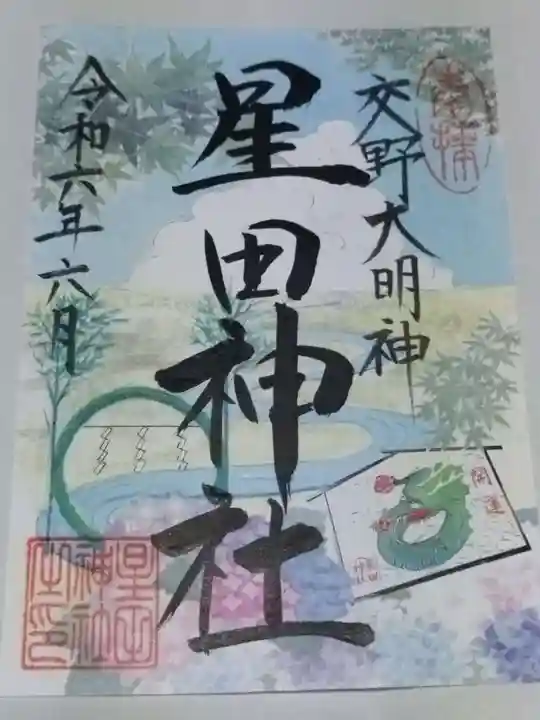 奉拝
交野大明神
星田神社
令和六年六月
開運
星田
神社
之印